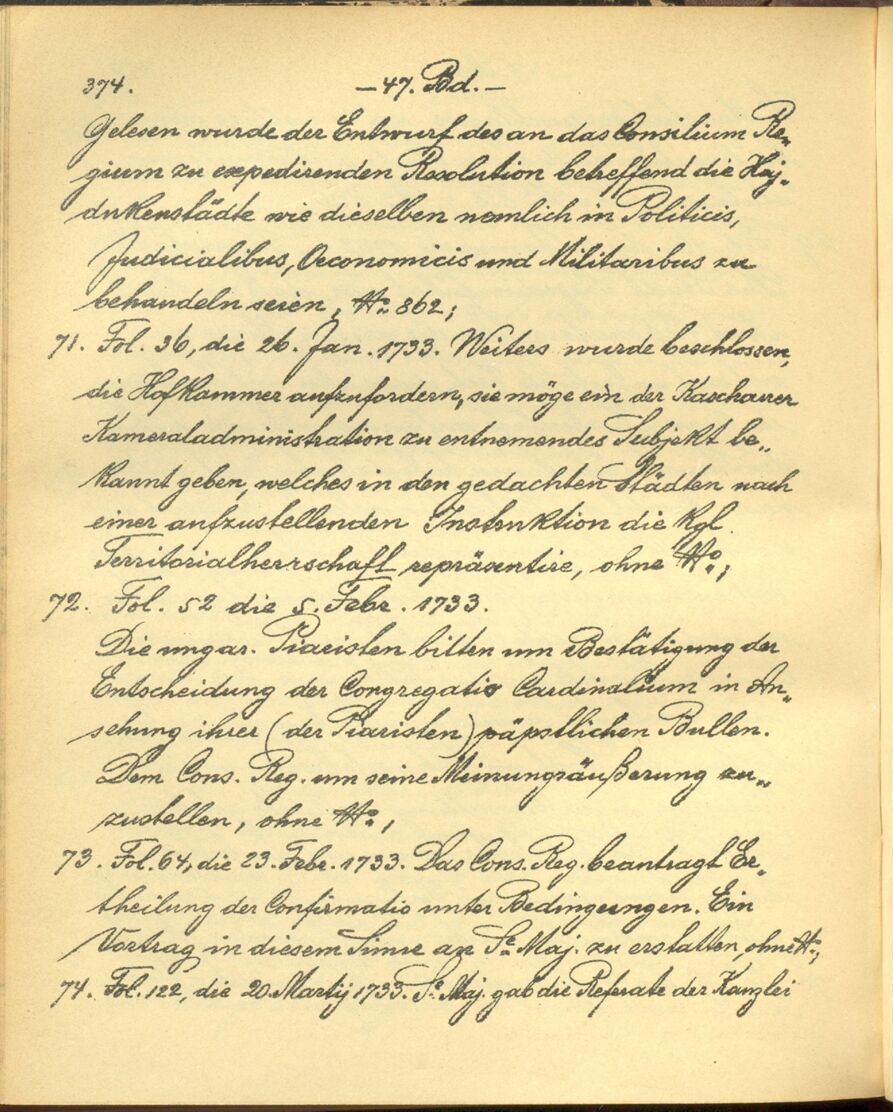 374. –47. Bd.–
Gelesen wurde der Entwurf des an das Consilium Re„
gium zu expedirenden Resolution betreffend die Haj„
dukenstädte wie dieselben nemlich in Politicis,
Judicialibus, Oeconomicis und Militaribus zu
behandeln seien, No 862;
71. Fol. 36, die 26. Jan. 1733. Weiters wurde beschlossen,
die Hofkammer aufzufordern, sie möge ein der Kaschauer
Kameraladministration zu entnemendes Subjekt be„
kannt geben, welches in den gedachten Städten nach
einer aufzustellenden Instruktion die kgl.
Territorialherrschaft repräsentire, ohne No;
72. Fol. 52 die 5. Febr. 1733.
Die ungar. Piaristen bitten um Bestätigung der
Entscheidung der Congregatio Cardinalium in An„
sehung ihrer (der Piaristen) päpstlichen Bullen.
Dem Cons. Reg. um seine Meinungsäußerung zu„
zustellen, ohne No;
73. Fol. 64, die 23. Febr. 1733. Das Cons. Reg. beantragt Er„
theilung der Confirmatio unter Bedingungen. Ein
Vortrag in diesem Sinne an Se Maj. zu erstatten, ohne No;
74. Fol. 122, die 20. Martij 1733. Se Maj. gab die Referate der Kanzlei